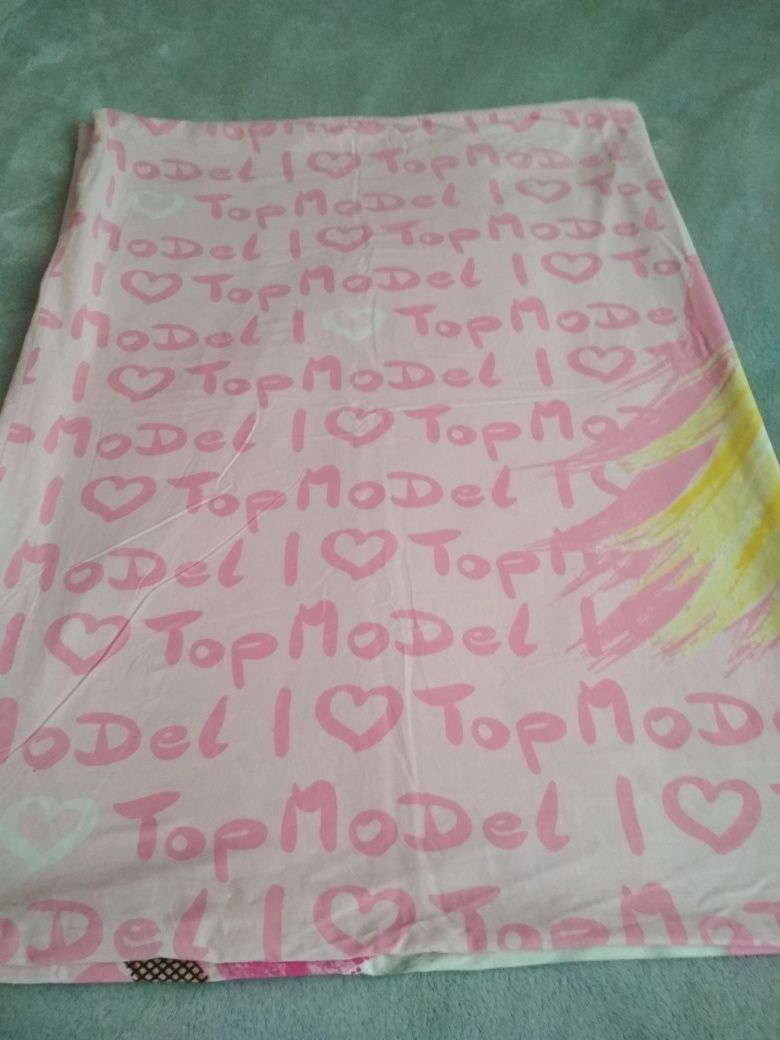 I ♡ TopMoDel I ♡ Top
MoDel I ♡ TopMoDel
I ♡ TopMoDel I ♡ Top
MoDel I ♡ TopMoDel
I ♡ TopMoDel I ♡ To
pMoDel I ♡ TopMoDe
l I ♡ TopMoDel I ♡
pMoDel I ♡ TopMoD
I ♡ TopMoDel I ♡
MoDel I ♡ TopM
I ♡ TopMoDel I
MoDel I ♡ TopMoD
♡ TopMoDel I ♡ T
oDel I ♡ TopMoD